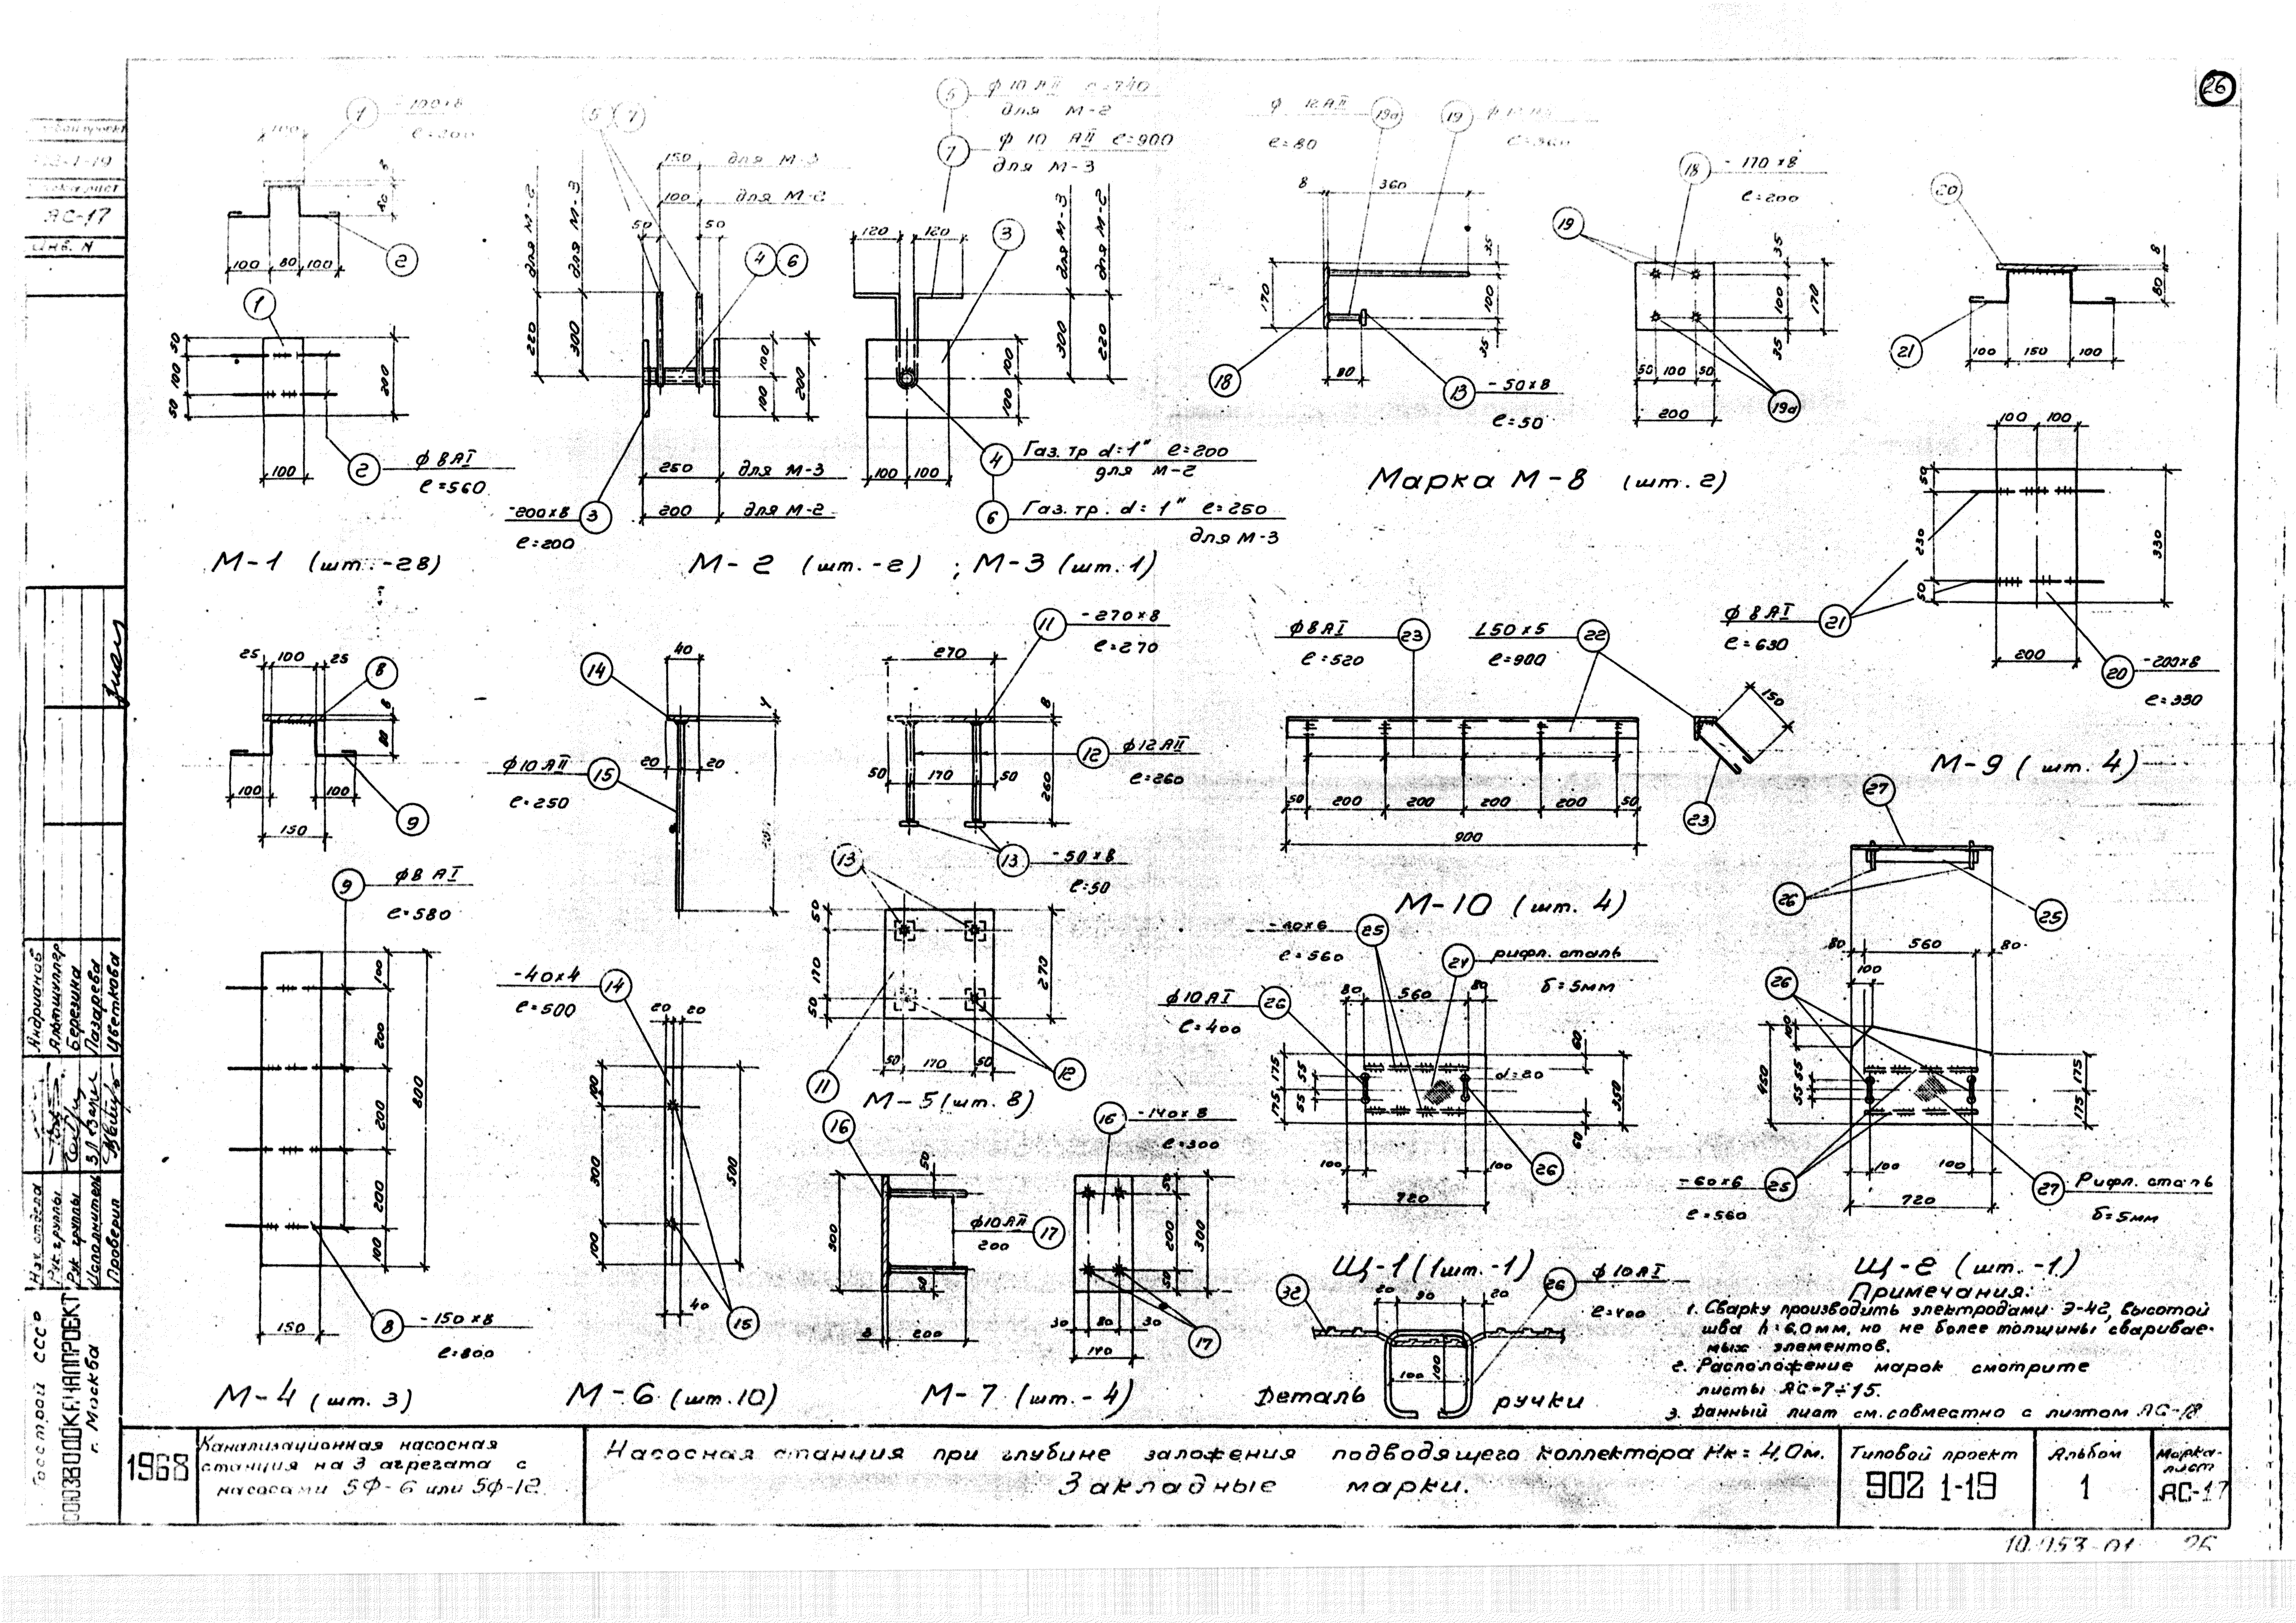 26
1
- 100×8
ℓ=200
100
80
2
100 80 100
1
50 100 50
200
100
2
ф 8 АI
ℓ=560
М-1 (шт.-28)
5 7
150 для М-3
100 для М-2
50 50
для М-2
для М-3
220
300
4 6
100 100 200
250 для М-3
200 для М-2
-200×8
ℓ=200
3
5
ф 10 АII ℓ=740
для М-2
7
ф 10 АII ℓ=900
для М-3
120 120
3
для М-3
для М-2
300
220
100 100
100 100
4
Газ. тр d=1" ℓ=200
для М-2
6
Газ. тр. d=1" ℓ=250
для М-3
М-2 (шт.-2) ; М-3 (шт.1)
ф 12 АII
ℓ=80
19а
19
8 360
35
170
100
35
80
18
13
-50×8
ℓ=50
18
-170×8
ℓ=200
19
35
100 170
35
50 100 50
200
19а
Марка М-8 (шт.2)
20
8
80
21
100 150 100
100 100
50
230
50
330
ф 8 АI
ℓ=630
21
200
20
-200×8
ℓ=330
М-9 (шт. 4)
25 100 25
8
8
80
100 100
9
150
9
ф8 АI
ℓ=580
100
200
200
200
100
800
150
8
-150×8
ℓ=800
М-4 (шт. 3)
14
40
4
ф 10 АII
ℓ=250
15
20 20
-40×4
ℓ=500
14
20 20
100
300
100
500
40
15
М-6 (шт.10)
11
-270×8
ℓ=270
270
8
12
ф12 АII
ℓ=260
50 170 50
260
13
-50×8
ℓ=50
13
50
170
50
270
50 170 50
11
12
М-5 (шт. 8)
16
50
300
ф10 АII
200
17
50
8 200
16
-140×8
ℓ=300
50
200
50
300
30 80 30
140
17
М-7 (шт.-4)
ф8АI
ℓ=520
23
L50×5
ℓ=900
22
150
50 200 200 200 200 50
900
23
М-10 (шт. 4)
-60×6
ℓ=560
25
24
рифл. сталь
δ=5мм
ф10 АI
ℓ=400
26
80 560 80
60
175 175
55 55
d=20
350
60
100 100
26
720
Щ-1 (1шт.-1)
27
26
25
80 560 80
100
26
100
450
55 55
175 175
100 100
-60×6
ℓ=560
25
27
Рифл. сталь
δ=5мм
720
Щ-2 (шт.-1)
32
20 90 20
26
ф 10 АI
ℓ=400
100
100
Деталь ручки
Примечания:
1. Сварку производить электродами Э-42, высотой
шва h=6,0мм, но не более толщины свариваe-
мых элементов.
2. Расположение марок смотрите
листы АС-7÷15.
3. Данный лист см. совместно с листом АС-18
1968
Канализационная насосная
станция на 3 агрегата с
насосами 5Ф-6 или 5Ф-12
Насосная станция при глубине заложения подводящего коллектора Нк=4,0м.
Закладные марки.
Типовой проект
902 1-19
Альбом
1
Марка-лист
АС-17
10953-01 26
АС-17
Инв. N
Андрианов
Альтшуллер
Березина
Лазарева
Цветкова
Нач. отдела
Рук. группы
Рук. группы
Исполнитель
Проверил
Госстрой СССР
СОЮЗВОДОКАНАЛПРОЕКТ
г. Москва